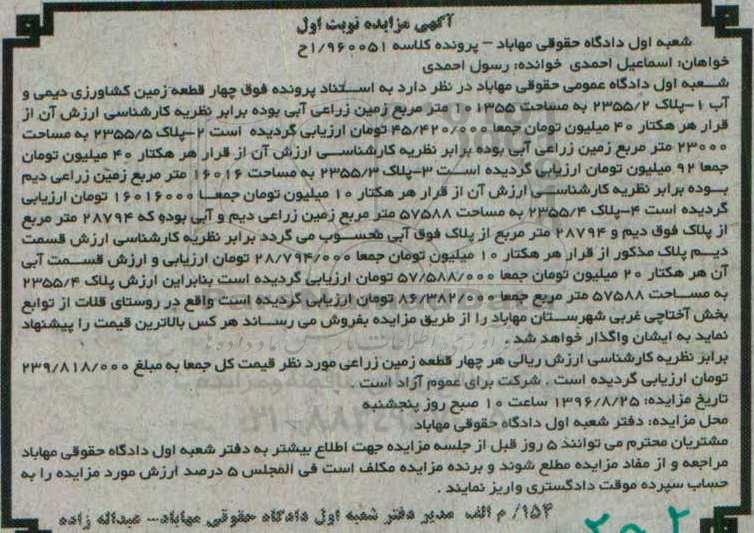 آگهی مزایده نوبت اول
شعبه اول دادگاه حقوقی مهاباد - پرونده کلاسه ۱/۹۶۰۰۵۱ح
خواهان: اسماعیل احمدی خوانده: رسول احمدی
شعبه اول دادگاه عمومی حقوقی مهاباد در نظر دارد به استناد پرونده فوق چهار قطعه زمین کشاورزی دیمی و
آب ۱-پلاک ۲۳۵۵/۲ به مساحت ۱۰۱۳۵۵ متر مربع زمین زراعی آبی بوده برابر نظریه کارشناسی ارزش آن از
قرار هر هکتار ۴۰ میلیون تومان جمعا ۴۵/۴۲۰/۰۰۰ تومان ارزیابی گردیده است ۲-پلاک ۲۳۵۵/۵ به مساحت
۲۳۰۰۰ متر مربع زمین زراعی آبی بوده برابر نظریه کارشناسی ارزش آن از قرار هر هکتار ۴۰ میلیون تومان
جمعا ۹۲ میلیون تومان ارزیابی گردیده است ۳-پلاک ۲۳۵۵/۳ به مساحت ۱۶۰۱۶ متر مربع زمین زراعی دیم
بوده برابر نظریه کارشناسی ارزش آن از قرار هر هکتار ۱۰ میلیون تومان جمعا ۱۶۰۱۶۰۰۰ تومان ارزیابی
گردیده است ۴-پلاک ۲۳۵۵/۴ به مساحت ۵۷۵۸۸ متر مربع زمین زراعی دیم و آبی بوده که ۲۸۷۹۴ متر مربع
از پلاک فوق دیم و ۲۸۷۹۴ متر مربع از پلاک فوق آبی محسوب می گردد برابر نظریه کارشناسی ارزش قسمت
دیم پلاک مذکور از قرار هر هکتار ۱۰ میلیون تومان جمعا ۲۸/۷۹۴/۰۰۰ تومان ارزیابی و ارزش قسمت آبی
آن هر هکتار ۲۰ میلیون تومان جمعا ۵۷/۵۸۸/۰۰۰ تومان ارزیابی گردیده است بنابراین ارزش پلاک ۲۳۵۵/۴
به مساحت ۵۷۵۸۸ متر مربع جمعا ۸۶/۳۸۲/۰۰۰ تومان ارزیابی گردیده است واقع در روستای قلات از توابع
بخش آختاچی غربی شهرستان مهاباد را از طریق مزایده بفروش می رساند هر کس بالاترین قیمت را پیشنهاد
نماید به ایشان واگذار خواهد شد .
برابر نظریه کارشناسی ارزش ریالی هر چهار قطعه زمین زراعی مورد نظر قیمت کل جمعا به مبلغ ۲۳۹/۸۱۸/۰۰۰
تومان ارزیابی گردیده است . شرکت برای عموم آزاد است .
تاریخ مزایده: ۱۳۹۶/۸/۲۵ ساعت ۱۰ صبح روز پنجشنبه
محل مزایده: دفتر شعبه اول دادگاه حقوقی مهاباد
مشتریان محترم می توانند ۵ روز قبل از جلسه مزایده جهت اطلاع بیشتر به دفتر شعبه اول دادگاه حقوقی مهاباد
مراجعه و از مفاد مزایده مطلع شوند و برنده مزایده مکلف است فی المجلس ۵ درصد ارزش مورد مزایده را به
حساب سپرده موقت دادگستری واریز نمایند .
۱۵۴/ م الف مدیر دفتر شعبه اول دادگاه حقوقی مهاباد- عبداله زاده